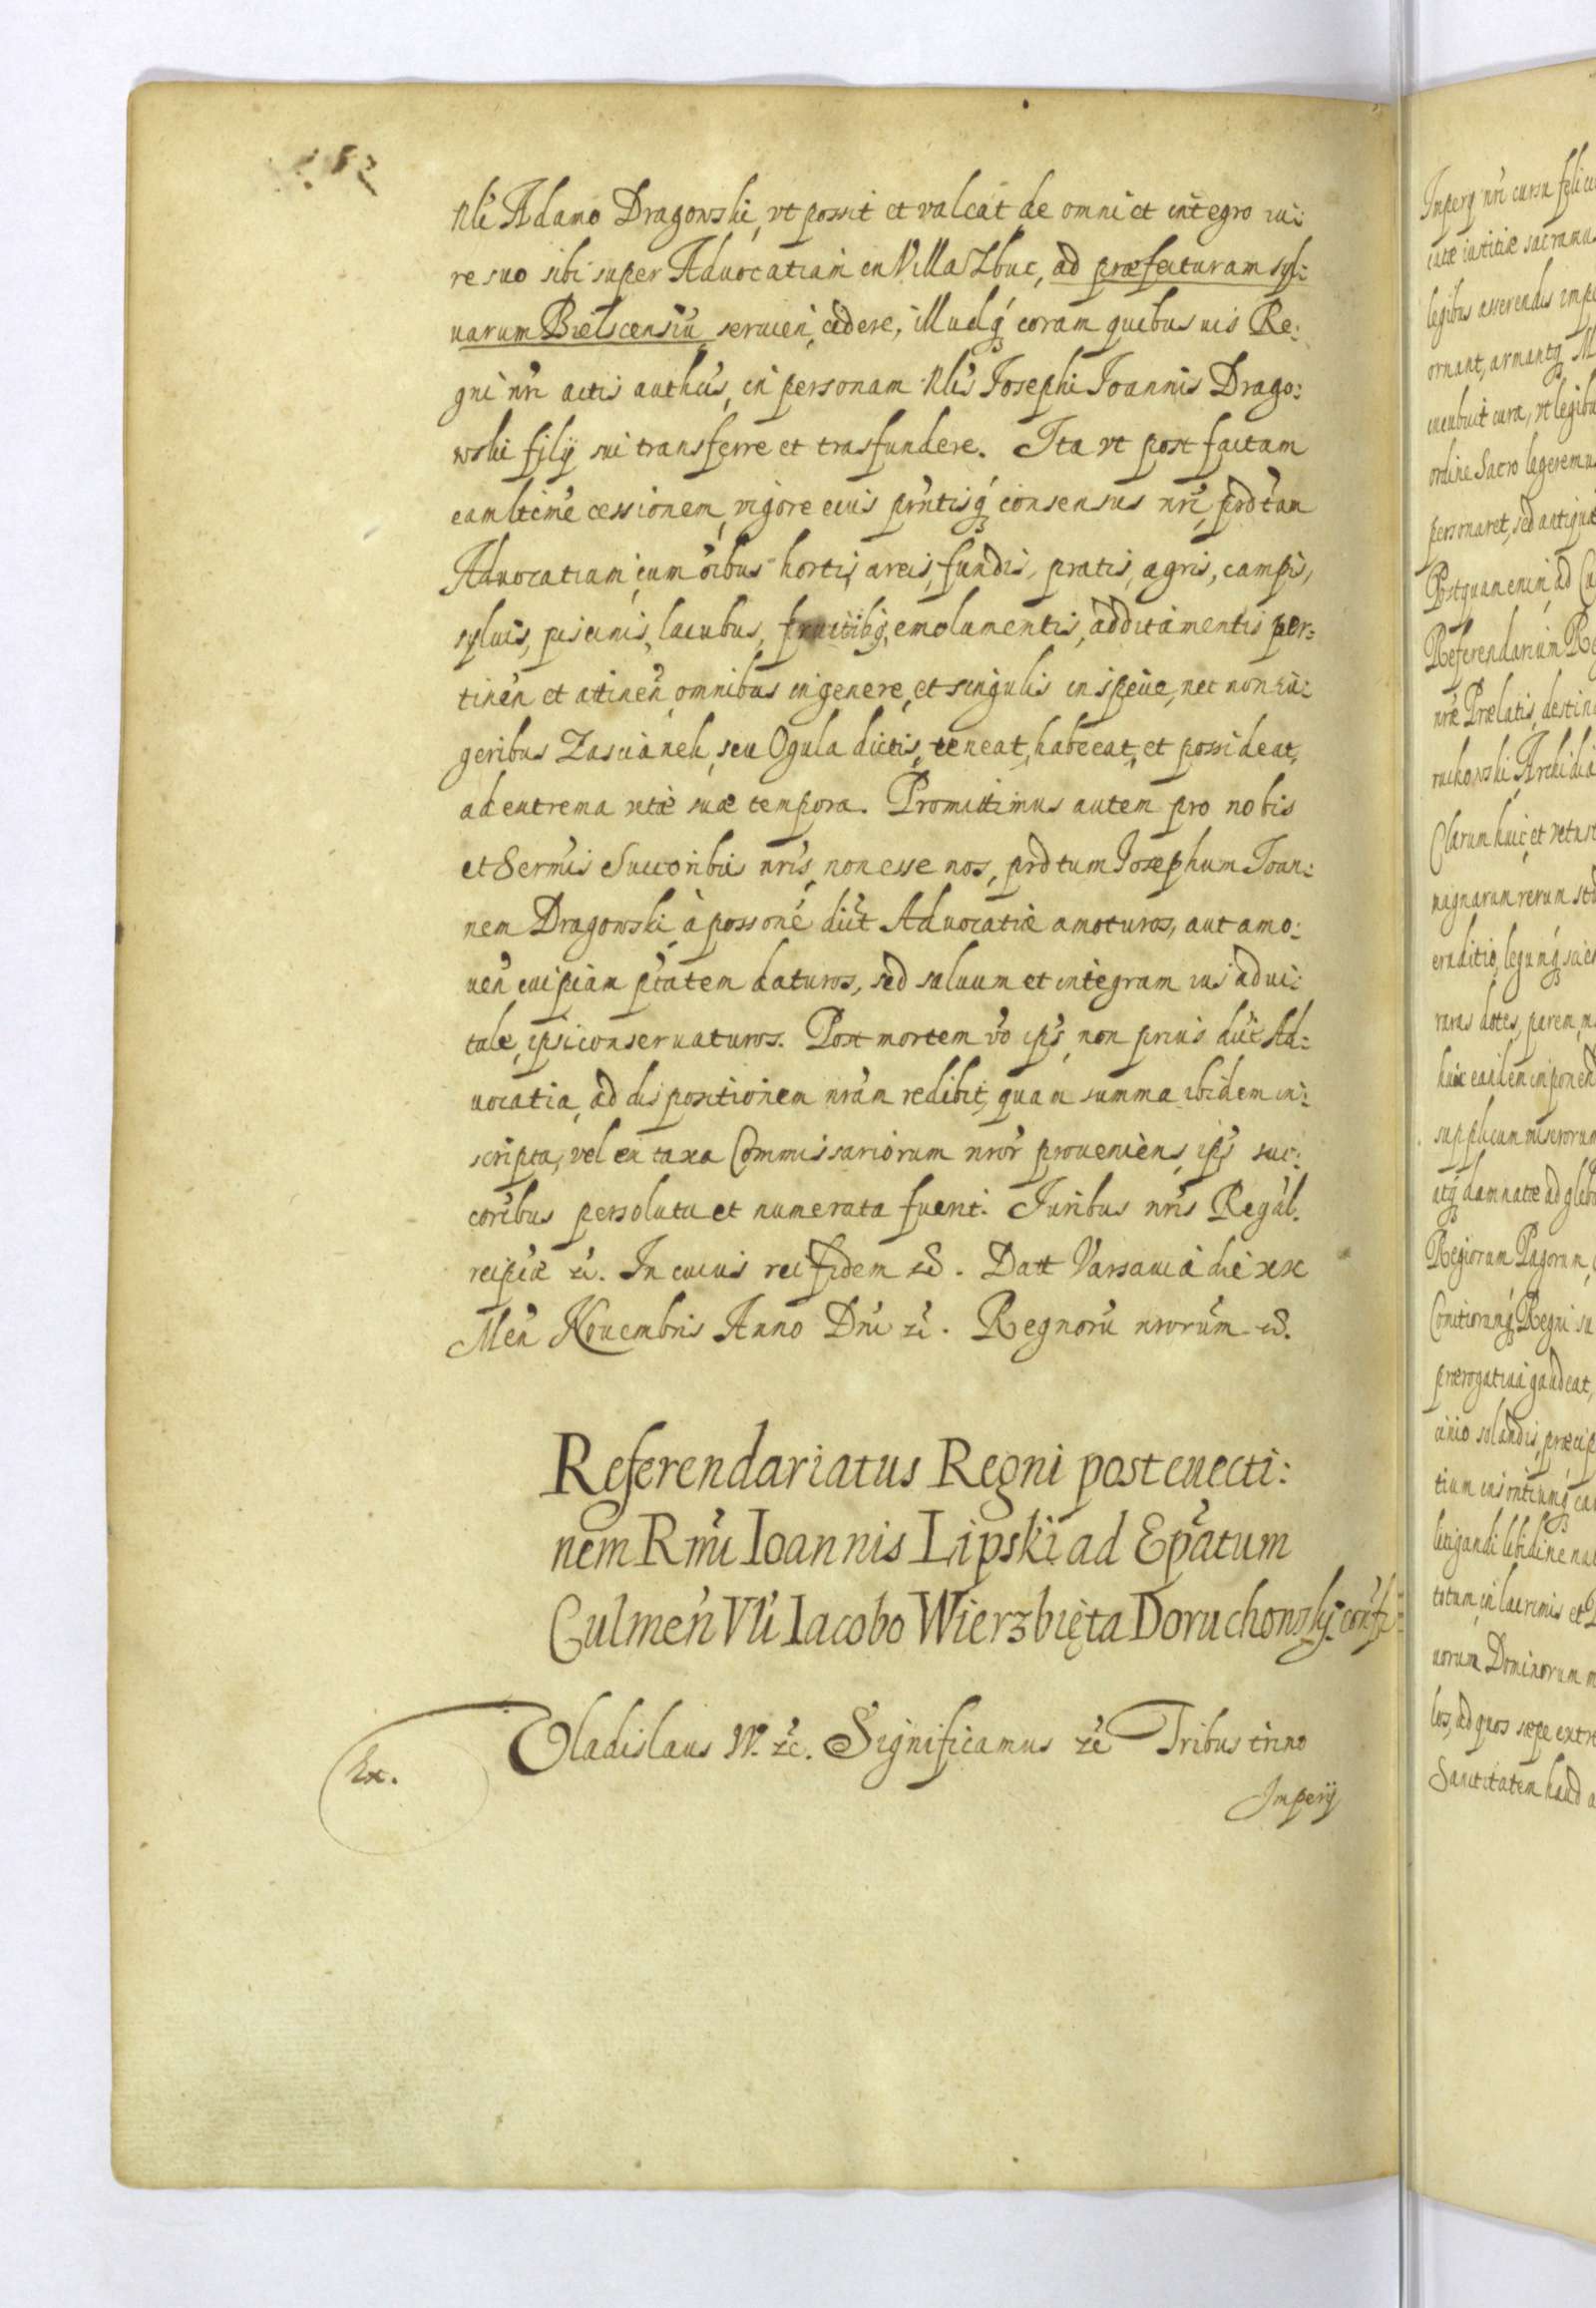 Nli Adamo Dragowski, vt possit et valeat de omni et integro iu:
re suo sibi super Aduocatiam in Villa Zbuc, ad præfecturam syl:
uarum Bielscensiu seruien, cedere, illudq coram quibusuis Re:
gni nri actis authcis, in personam Nlis Josephi Joannis Drago:
wski filij sui transferre et trasfundere. Ita vt post factam
eam ltime cessionem, vigore eius prntisq consensus nri, prdtam
Aduocatiam, cum oibus hortis, areis, fundis, pratis, agris, campis,
syluis, piscinis, lacubus, fructibq, emolumentis, additamentis per:
tinen et attinen omnibus in genere, et singulis in specie, nec non iu:
geribus Zascianek, seu Ogula dictis, teneat, habeat, et possideat,
ad extrema vitæ suæ tempora. Promittimus autem pro nobis
et Sermis Succoribus nris, non esse nos, prdtum Josephum Joan:
nem Dragowski à possone dict Aduocatiæ amoturos, aut amo:
uen cuipiam ptatem daturos, sed saluum et integram ius adui:
tale, ipsi conseruaturos. Post mortem vo ips, non prius dict Ad:
uocatia, ad dispositionem nram redibit, quam summa ibidem in:
scripta, vel ex taxa Commissariorum nror proueniens, ips suc:
coribus persoluta et numerata fuerit. Juribus nris Regal.
reipcæ zc. In cuius rei fidem zc. Datt Varsauiæ die xx
Men Nouembris Anno Dni zc. Regnoru nrorum zc.
Referendariatus Regni post euecti:
nem Rmi Ioannis Lipski ad Epatum
Culmen Vli Iacobo Wierzbięta Doruchowski confr:
Vladislaus IV. zc. Significamus zc Tribus trino
Ex.
Imperij
Imperij nri cursu felici
catæ iustitiæ sacramu
legibus asserendis impe
ornant, armantq M
incubuit cura, vt legibu
ordine Sacro legeremus
personaret, sed antiqui
Postquam enim, ad Cu
Referendarium Re
nræ Prælatis, destin
ruchowski Archidia
Clarum huic, et vetust
magnarum rerum stud
eruditio, legumq sci
raras dotes, parem, n
huic eandem imponend
supplicum miserorum
atq damnatæ ad gleb
Regiorum Pagorum,
Comitiorumq Regni su
prærogatiua gaudeat,
cinio solandis, præcip
litigandi libidine na
totum, in lacrimis et
uorum Dominorum m
los, ad quos sæpe extr
Sanctitatem haud a